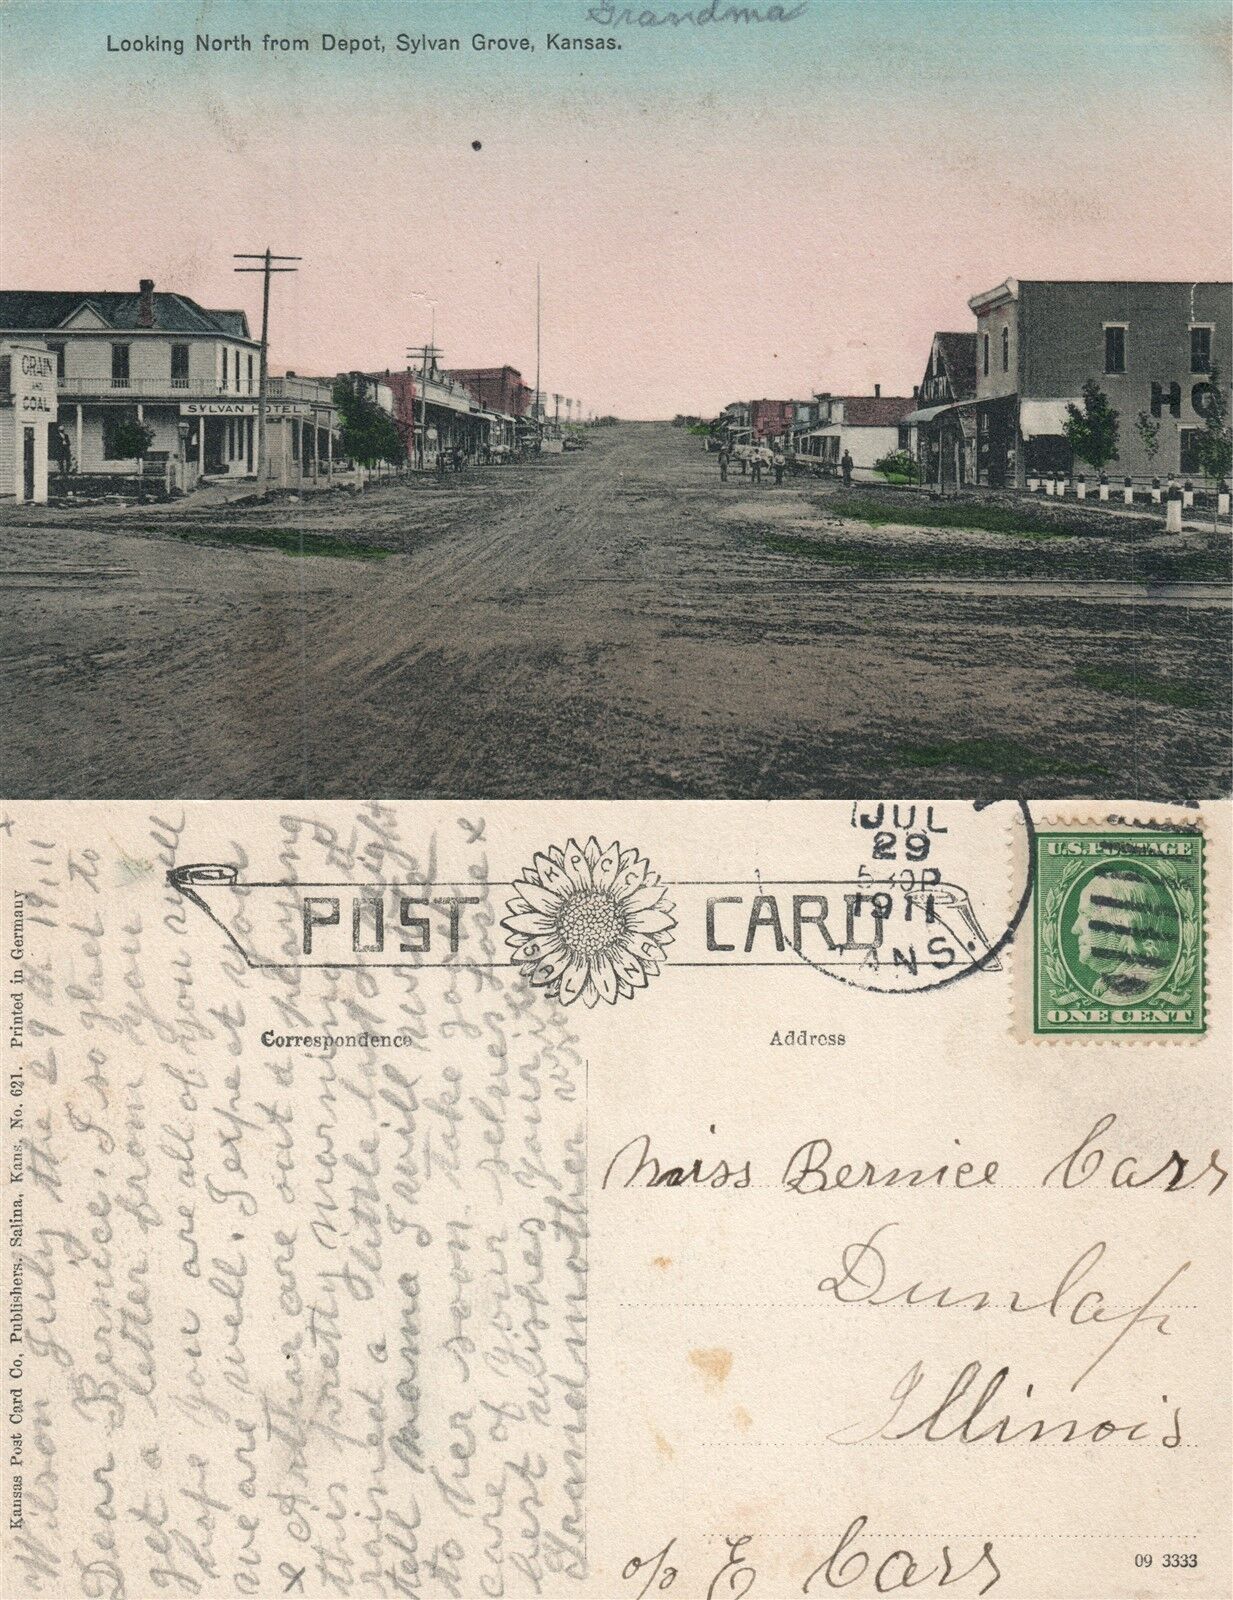 Grandma
Looking North from Depot, Sylvan Grove, Kansas.
GRAIN
AND
COAL
SYLVAN HOTEL
HO
JUL
29
1911
ANS.
U.S. POSTAGE
ONE CENT
POST CARD
K P C C
SALINA
Correspondence
Address
Miss Bernice Carr
Dunlap
Illinois
o/o E Carr
09 3333
Kansas Post Card Co, Publishers, Salina, Kans, No. 621. Printed in Germany
Wilson July the 29 th 1911
Dear Bernice, I so glad to
get a letter from you
hope you are all of you well
we are well. I expect you
& Arthur are out a haying
this pretty morning it
rained a little last night
tell mama I will write
to her soon. take good
care of your selves love &
best wishes your
Grandmother